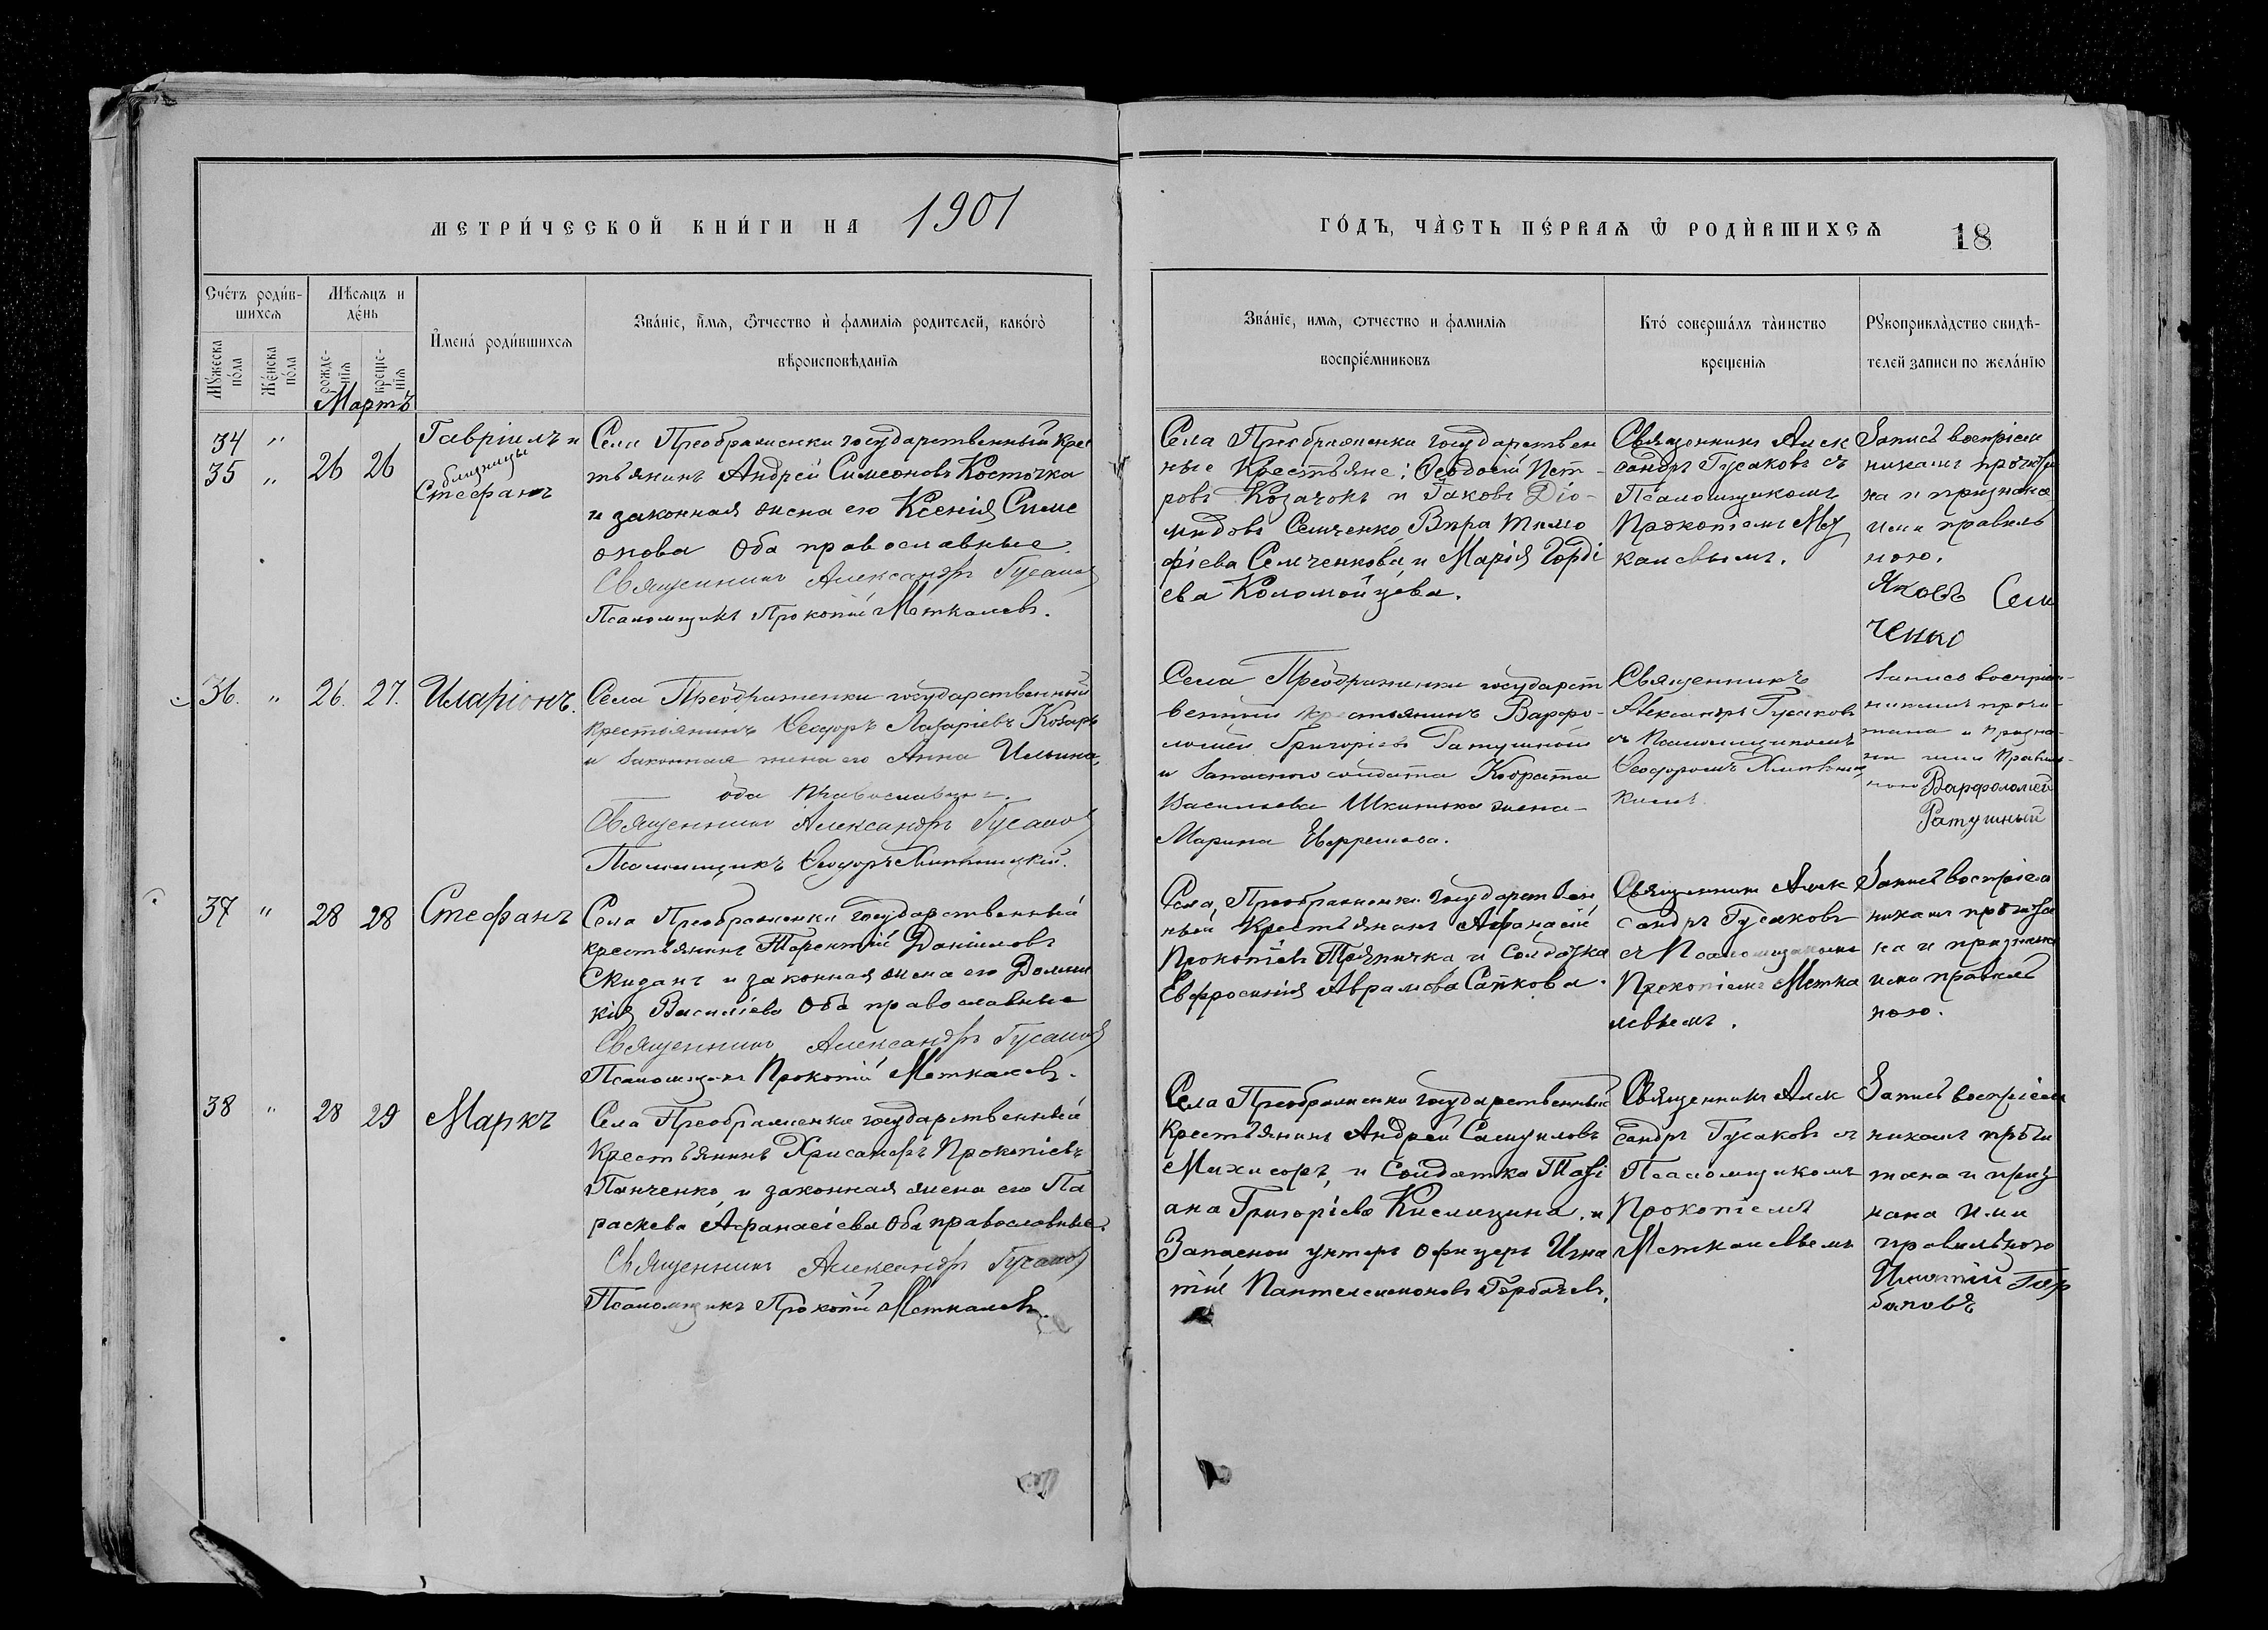 МЕТРИ́ЧЕСКОЙ КНИ́ГИ НА 1901
ГО́ДЪ, ЧА̀СТЬ ПЕ́РВАѦ Ѿ РОДЍВШИХСѦ 18
Счéтъ роди́в-
шихсѧ
Мѣсѧцъ и
дéнь
Мꙋ́жеска
пóла
Жéнска
пóла
рожде-
нїѧ
креще-
нїѧ
Мартъ
И҆мена́ роди́вшихсѧ
Зва́нїе, и҆́мѧ, ѻ҆́тчество и҆ фамилїѧ родителей, како́гѡ
вѣроисповѣданїѧ
Зва́нїе, имѧ, ѻтчество и фамилїѧ
воспрїе́мниковъ
Кто́ соверша́лъ та̀инство
крещенїѧ
Рꙋкоприкла̀дство свидѣ-
телей записи по жела́нїю
34 "
35 "
26 26
Гавріилъ и
близнецы
Стефанъ
Села Преображенки государственный крес
тьянинъ Андрей Симеоновъ Косточка
и законная жена его Ксенія Симе
онова Оба православные.
Священникъ Александръ Гусаковъ
Псаломщикъ Прокопій Меткалевъ.
Села Преображенки государствен
ные Крестьяне: Ѳеодосій Пет-
ровъ Козачокъ и Іаковъ Діо-
мидовъ Семченко, Вѣра Тимо
фіева Семченкова, и Марія Горді
ева Коломойцева.
Священникъ Алек
сандръ Гусаковъ съ
Псаломщикомъ
Прокопіемъ Мет
калевымъ.
Запись воспріем
никамъ прочита
на и признана
ими правиль
ною.
Яковъ Сем
ченко
36. " 26. 27. Иларіонъ.
Села Преображенки государственный
крестьянинъ Ѳеодоръ Лазаріевъ Козаръ
и законная жена его Анна Ильина,
оба православные.
Священникъ Александръ Гусаковъ
Псаломщикъ Ѳеодоръ
Села Преображенки государст
венный крестьянинъ Варфо-
ломей Григоріевъ Ратушный
и запаснаго солдата Кодрата
Васильева жена-
Марина Ефремова.
Священникъ
Александръ Гусаковъ
съ Псаломщикомъ
Ѳеодоромъ
Запись воспріем-
никамъ прочи-
тана и призна-
на ими правиль-
ною Варфоломей
Ратушный
37 " 28 28 Стефанъ
Села Преображенки государственный
крестьянинъ Терентій Даніиловъ
Скиданъ и законная жена его Домни
кія Василіева Оба православные
Священникъ Александръ Гусаковъ
Псаломщикъ Прокопій Меткалевъ.
Села Преображенки государствен
ный Крестьянинъ Афанасій
Прокопіевъ Тряпичка и Солдатка
Евфросинія Аврамова Сайкова.
Священникъ Алек
сандръ Гусаковъ
съ Псаломщикомъ
Прокопіемъ Метка
левымъ.
Запись воспріем
никамъ прочита
на и признана
ими правиль
ною.
38 " 28 29 Маркъ
Села Преображенки государственный
Крестьянинъ Хрисанфъ Прокопіевъ
Панченко, и законная жена его Па
раскева Афанасіева Оба православные.
Священникъ Александръ Гусаковъ
Псаломщикъ Прокопій Меткалевъ.
Села Преображенки государственный
Крестьянинъ Андрей Самуиловъ
и Солдатка Таті
ана Григоріева Кислицина, и
Запасной унтеръ офицеръ Игна
тій Пантелеимоновъ Горбачевъ.
Священникъ Алек
сандръ Гусаковъ съ
Псаломщикомъ
Прокопіемъ
Меткалевымъ
Запись воспріем
никамъ прочи
тана и приз
нана ими
правильною
Игнатій Гор